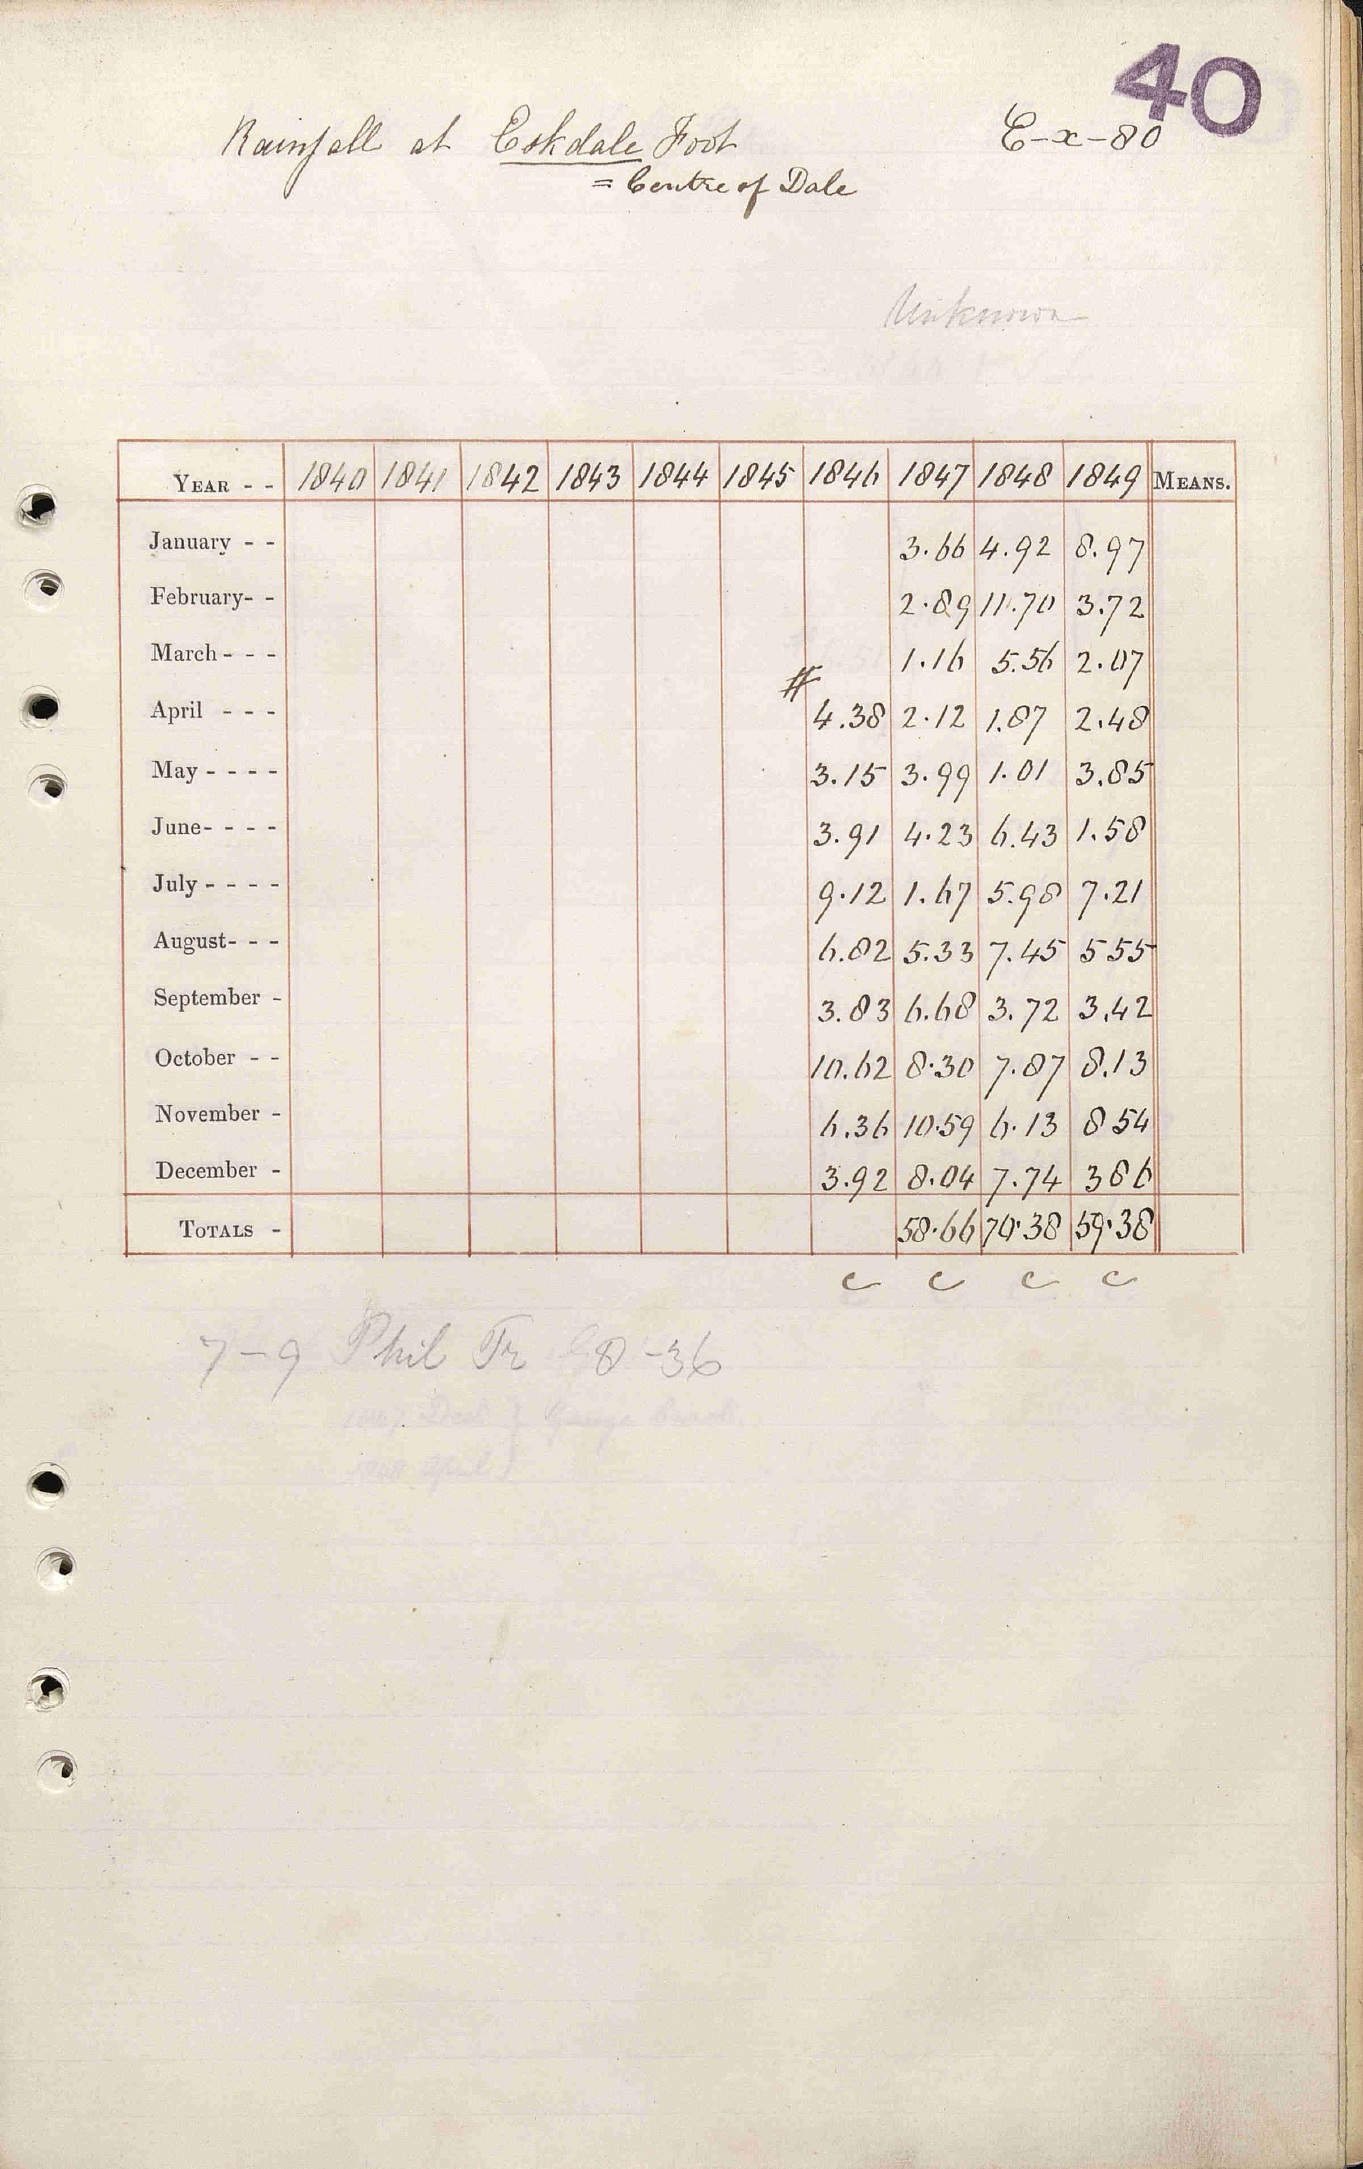 40
Rainfall at Eskdale Foot E-x-80
= Centre of Dale
Unknown
YEAR - - 1840 1841 1842 1843 1844 1845 1846 1847 1848 1849 MEANS.
January - - 3.66 4.92 8.97
February- - 2.89 11.70 3.72
March - - - 1.16 5.56 2.07
#
April - - - 4.38 2.12 1.87 2.48
May - - - - 3.15 3.99 1.01 3.85
June- - - - 3.91 4.23 6.43 1.58
July - - - - 9.12 1.67 5.98 7.21
August- - - 6.82 5.33 7.45 5 55
September - 3.83 6.68 3.72 3.42
October - - 10.62 8.30 7.87 8.13
November - 6.36 10.59 6.13 8 54
December - 3.92 8.04 7.74 3 86
TOTALS - 58.66 70.38 59.38
c c c c
7-9 Phil Tr 8-36